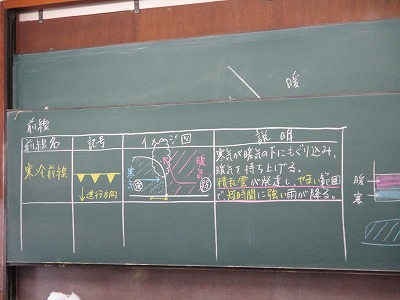 暖
前線
前線名 記号 イメージ図 説明
寒気が暖気の下にもぐり込み、
寒冷前線 暖気を持ち上げる。
積乱雲が発達し、せまい範囲
↓進行方向 寒気 暖気 で短時間に強い雨が降る。
暖
寒